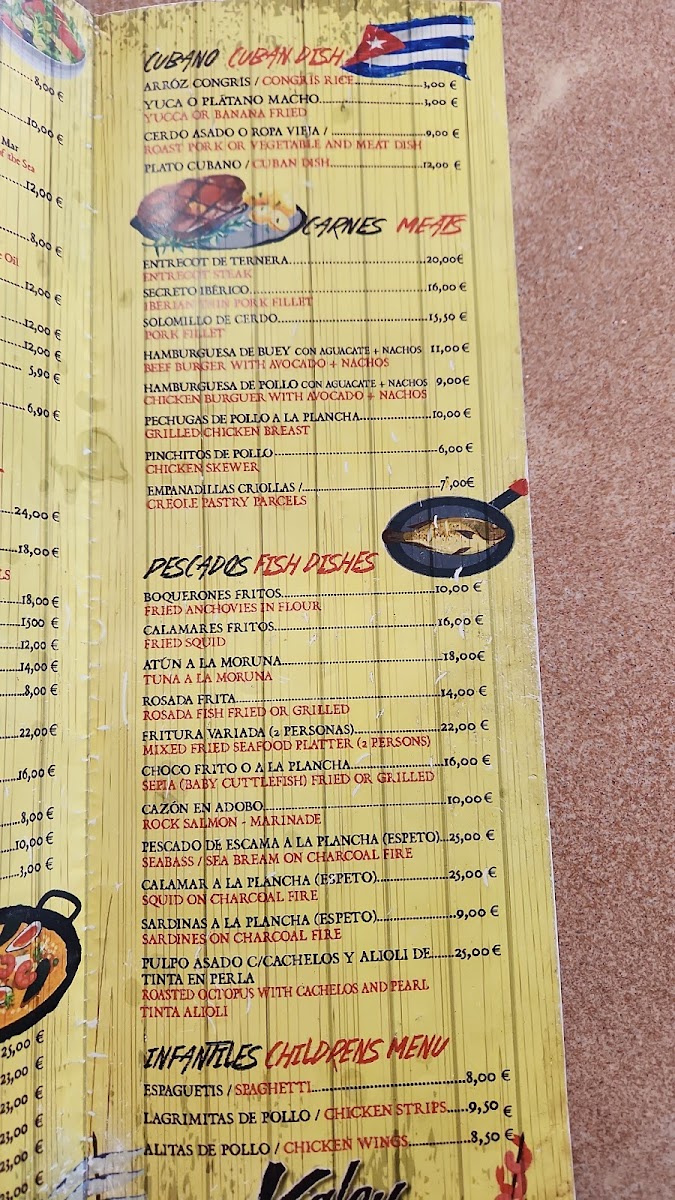 8,00 €
10,00 €
Mar
of the Sea
12,00 €
8,00 €
e Oil
12,00 €
12,00 €
12,00 €
5,90 €
6,90 €
24,00 €
18,00 €
LS
18,00 €
1500 €
12,00 €
14,00 €
8,00 €
22,00 €
16,00 €
8,00 €
10,00 €
3,00 €
25,00 €
23,00 €
23,00 €
23,00 €
23,00 €
25,00 €
CUBANO CUBAN DISH
ARRÓZ CONGRÍS / CONGRIS RICE 3,00 €
YUCA O PLÁTANO MACHO 3,00 €
YUCCA OR BANANA FRIED
CERDO ASADO O ROPA VIEJA / 9,00 €
ROAST PORK OR VEGETABLE AND MEAT DISH
PLATO CUBANO / CUBAN DISH 12,00 €
CARNES MEATS
ENTRECOT DE TERNERA 20,00€
ENTRECOT STEAK
SECRETO IBÉRICO 16,00 €
IBERIAN THIN PORK FILLET
SOLOMILLO DE CERDO 15,50 €
PORK FILLET
HAMBURGUESA DE BUEY CON AGUACATE + NACHOS 11,00 €
BEEF BURGER WITH AVOCADO + NACHOS
HAMBURGUESA DE POLLO CON AGUACATE + NACHOS 9,00€
CHICKEN BURGUER WITH AVOCADO + NACHOS
PECHUGAS DE POLLO A LA PLANCHA 10,00 €
GRILLED CHICKEN BREAST
PINCHITOS DE POLLO 6,00 €
CHICKEN SKEWER
EMPANADILLAS CRIOLLAS / 7',00€
CREOLE PASTRY PARCELS
PESCADOS FISH DISHES
BOQUERONES FRITOS 10,00 €
FRIED ANCHOVIES IN FLOUR
CALAMARES FRITOS 16,00 €
FRIED SQUID
ATÚN A LA MORUNA 18,00€
TUNA A LA MORUNA
ROSADA FRITA 14,00 €
ROSADA FISH FRIED OR GRILLED
FRITURA VARIADA (2 PERSONAS) 22,00 €
MIXED FRIED SEAFOOD PLATTER (2 PERSONS)
CHOCO FRITO O A LA PLANCHA 16,00 €
SEPIA (BABY CUTTLEFISH) FRIED OR GRILLED
CAZÓN EN ADOBO 10,00 €
ROCK SALMON - MARINADE
PESCADO DE ESCAMA A LA PLANCHA (ESPETO) 25,00 €
SEABASS / SEA BREAM ON CHARCOAL FIRE
CALAMAR A LA PLANCHA (ESPETO) 25,00 €
SQUID ON CHARCOAL FIRE
SARDINAS A LA PLANCHA (ESPETO) 9,00 €
SARDINES ON CHARCOAL FIRE
PULPO ASADO C/CACHELOS Y ALIOLI DE 25,00 €
TINTA EN PERLA
ROASTED OCTOPUS WITH CACHELOS AND PEARL
TINTA ALIOLI
INFANTILES CHILDRENS MENU
ESPAGUETIS / SPAGHETTI 8,00 €
LAGRIMITAS DE POLLO / CHICKEN STRIPS 9,50 €
ALITAS DE POLLO / CHICKEN WINGS 8,50 €